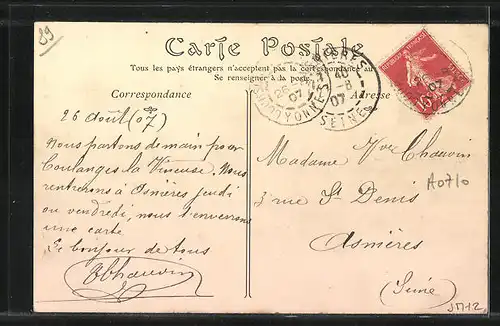 89
Carte Postale
Tous les pays étrangers n'acceptent pas la correspondance au
Se renseigner à la poste
Correspondance
Adresse
26 Août (07)
Nous partons demain pour
Coulanges la Vineuse. Nous
rentrerons à Asnières jeudi
ou vendredi, nous t'enverrons
une carte
Le bonjour de tous
Chauvin
26
07
YONNE
40
8
07
SEINE
15
Madame Vve Chauvin
3 rue St Denis
Asnières
(Seine)
A0710